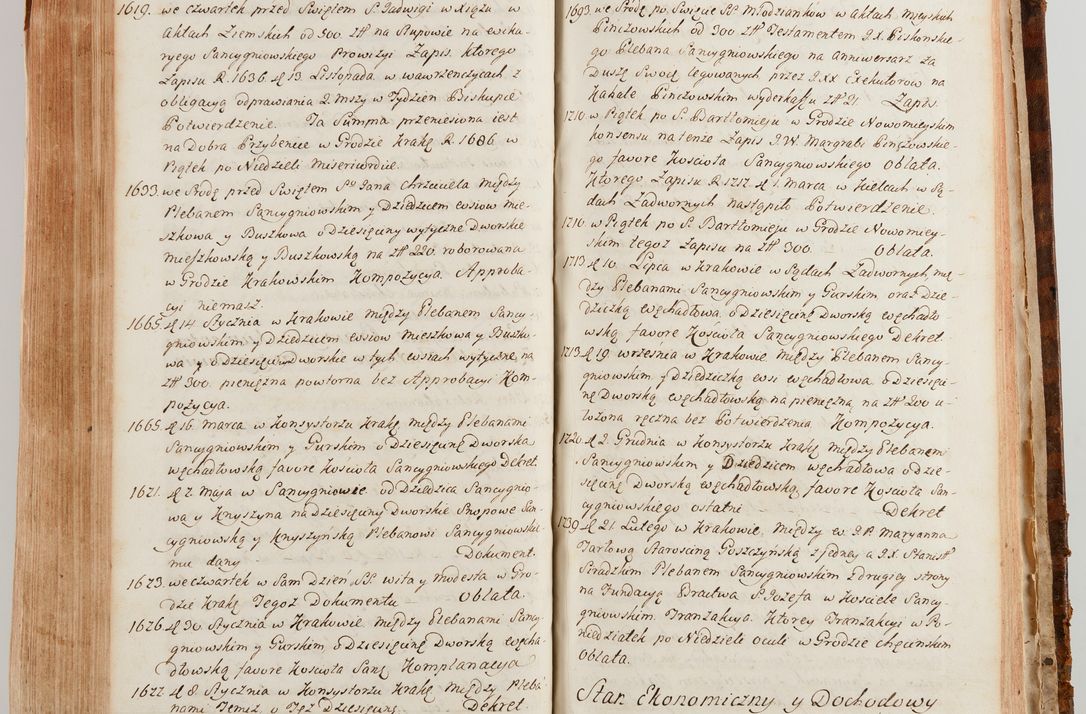 1619. we czwartek przed Swiętem S. Jadwigi w Xiążu w
Aktach Ziemskich od 300 zł na Stupowie na ewika-
ryego Sancygniowskiego Prowizyi Zapis. ktorego
Zapisu R. 1636 d. 13. Listopada w wawrzenczycach z
obligacyą odprawiania 2. Mszy w Tydzien Biskupie
Potwierdzenie. Ta Summa przeniesiona iest
na Dobra Przybenice w Grodzie Krakẽ R. 1686 w
Piątek po Niedzieli Misericordie.
1633. we Srodę przed Swiętem S. Jana Chrzciciela między
Plebanem Sancygniowskim y Dziedzicem wsiow Mie-
szkowa y Buszkowa o Dziesięciny wytyczne Dworskie
Mieszkowską y Buszkowską na zł 220. roborowana
w Grodzie Krakowskim Kompozycya. Approba-
cyi niemasz.
1665. d. 14. Stycznia w Krakowie między Plebanem Sancy-
gniowskim y Dziedzicem wsiow Mieszkowa y Buszko-
wa y o Dziesięciny Dworskie w tych wsiach wytyczne na
zł 300. pieniężna powtorna bez Approbacyi Kom-
pozycya.
1665. d. 16. Marca w Konsystorzu Krakẽ między Plebanami
Sancygniowskim y Gurskim o Dziesięcinę Dworska
węchadłowską favore Kosciola Sancygniowskiego Dekret.
1671. d. 7. Maja w Sancygniowie od Dziedzica Sancygnio-
wa y Knyszyna na Dziesięciny Dworskie Snopowe San-
cygniowską y Knyszyńską Plebanowi Sancygniowskie-
mu dany Dokument.
1673. we czwartek w Sam Dzień SS. wita y Modesta w Gro-
dzie Krakẽ Tegoż Dokumentu Oblata.
1676. d. 30 Stycznia w Krakowie między Plebanami Sancy-
gniowskim y Gurskim o Dziesięcinę Dworską węcha-
dłowską favore Kosciola Sanẽ Komplanacya
1677. d. 8. Stycznia w Konsystorzu Krakẽ między Pleba-
nami Temiż o Też Dziesięcinę Dekret.
1693. we Srodę po Swięcie SS. Młodzianków w Aktach Mieyskich
Pinczowskich od 300 zł Testamentem J.X. Piskorskie-
go Plebana Sancygniowskiego na anniwersarz za
Duszę Swoią legowanych przez J.XX Exekutorow na
Kahale Pinczowskim wyderkaffu zł 21. Zapis.
1710. w Piątek po S. Bartłomieju w Grodzie Nowomieyskim
konsensu na tenże Zapis J.W. Margrabi Pinczowskie-
go favore Kosciola Sancygniowskiego Oblata.
Ktorego Zapisu R. 1717. d. 1. Marca w Kielcach w Są-
dach Zadwornych nastąpiło Potwierdzenie.
1710. w Piątek po S. Bartłomieju w Grodzie Nowomiey-
skim tegoż Zapisu na zł 300. Oblata.
1713. d. 10. Lipca w Krakowie w Sądach Zadwornych, mię-
dzy Plebanami Sancygniowskim y Gurskim oraz Dzie-
dziczką węchadłowa. o Dziesięcinę Dworską węchadło-
wską favore Kosciola Sancygniowskiego Dekret.
1713. d. 19. września w Krakowie między Plebanem Sancy-
gniowskim y Dziedziczką wsi węchadłowa o Dziesięci-
nę Dworską węchadłowską na pieniężną na zł 200 u-
łożona ręczna bez Potwierdzenia Kompozycya.
1720. d. 2. Grudnia w Konsystorzu Krakẽ między Plebanem
Sancygniowskim y Dziedzicem węchadłowa o Dzie-
sięcinę Dworską węchadłowską, favore Kosciola San-
cygniowskiego ostatni Dekret
1739. d. 21. Lutego w Krakowie, między w. J.P. Maryanna
Tarłową Starosciną Goszczyńską z jedney a J.X. Stanisł
Siradzkim Plebanem Sancygniowskim z drugiey strony
na Fundacyą Bractwa S. Jozefa w Kosciele Sancy-
gniowskim Tranzakcya. Ktorey Tranzakcyi w Po-
niedziałek po Niedzieli Oculi w Grodzie Chęcinskim
Oblata.
Stan Ekonomiczny y Dochodowy